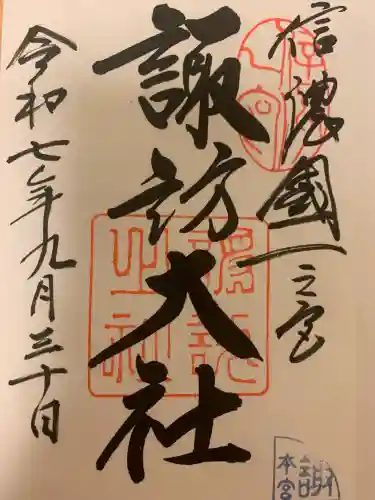 信濃國一之宮
諏訪大社
令和七年九月三十日
諏
本宮